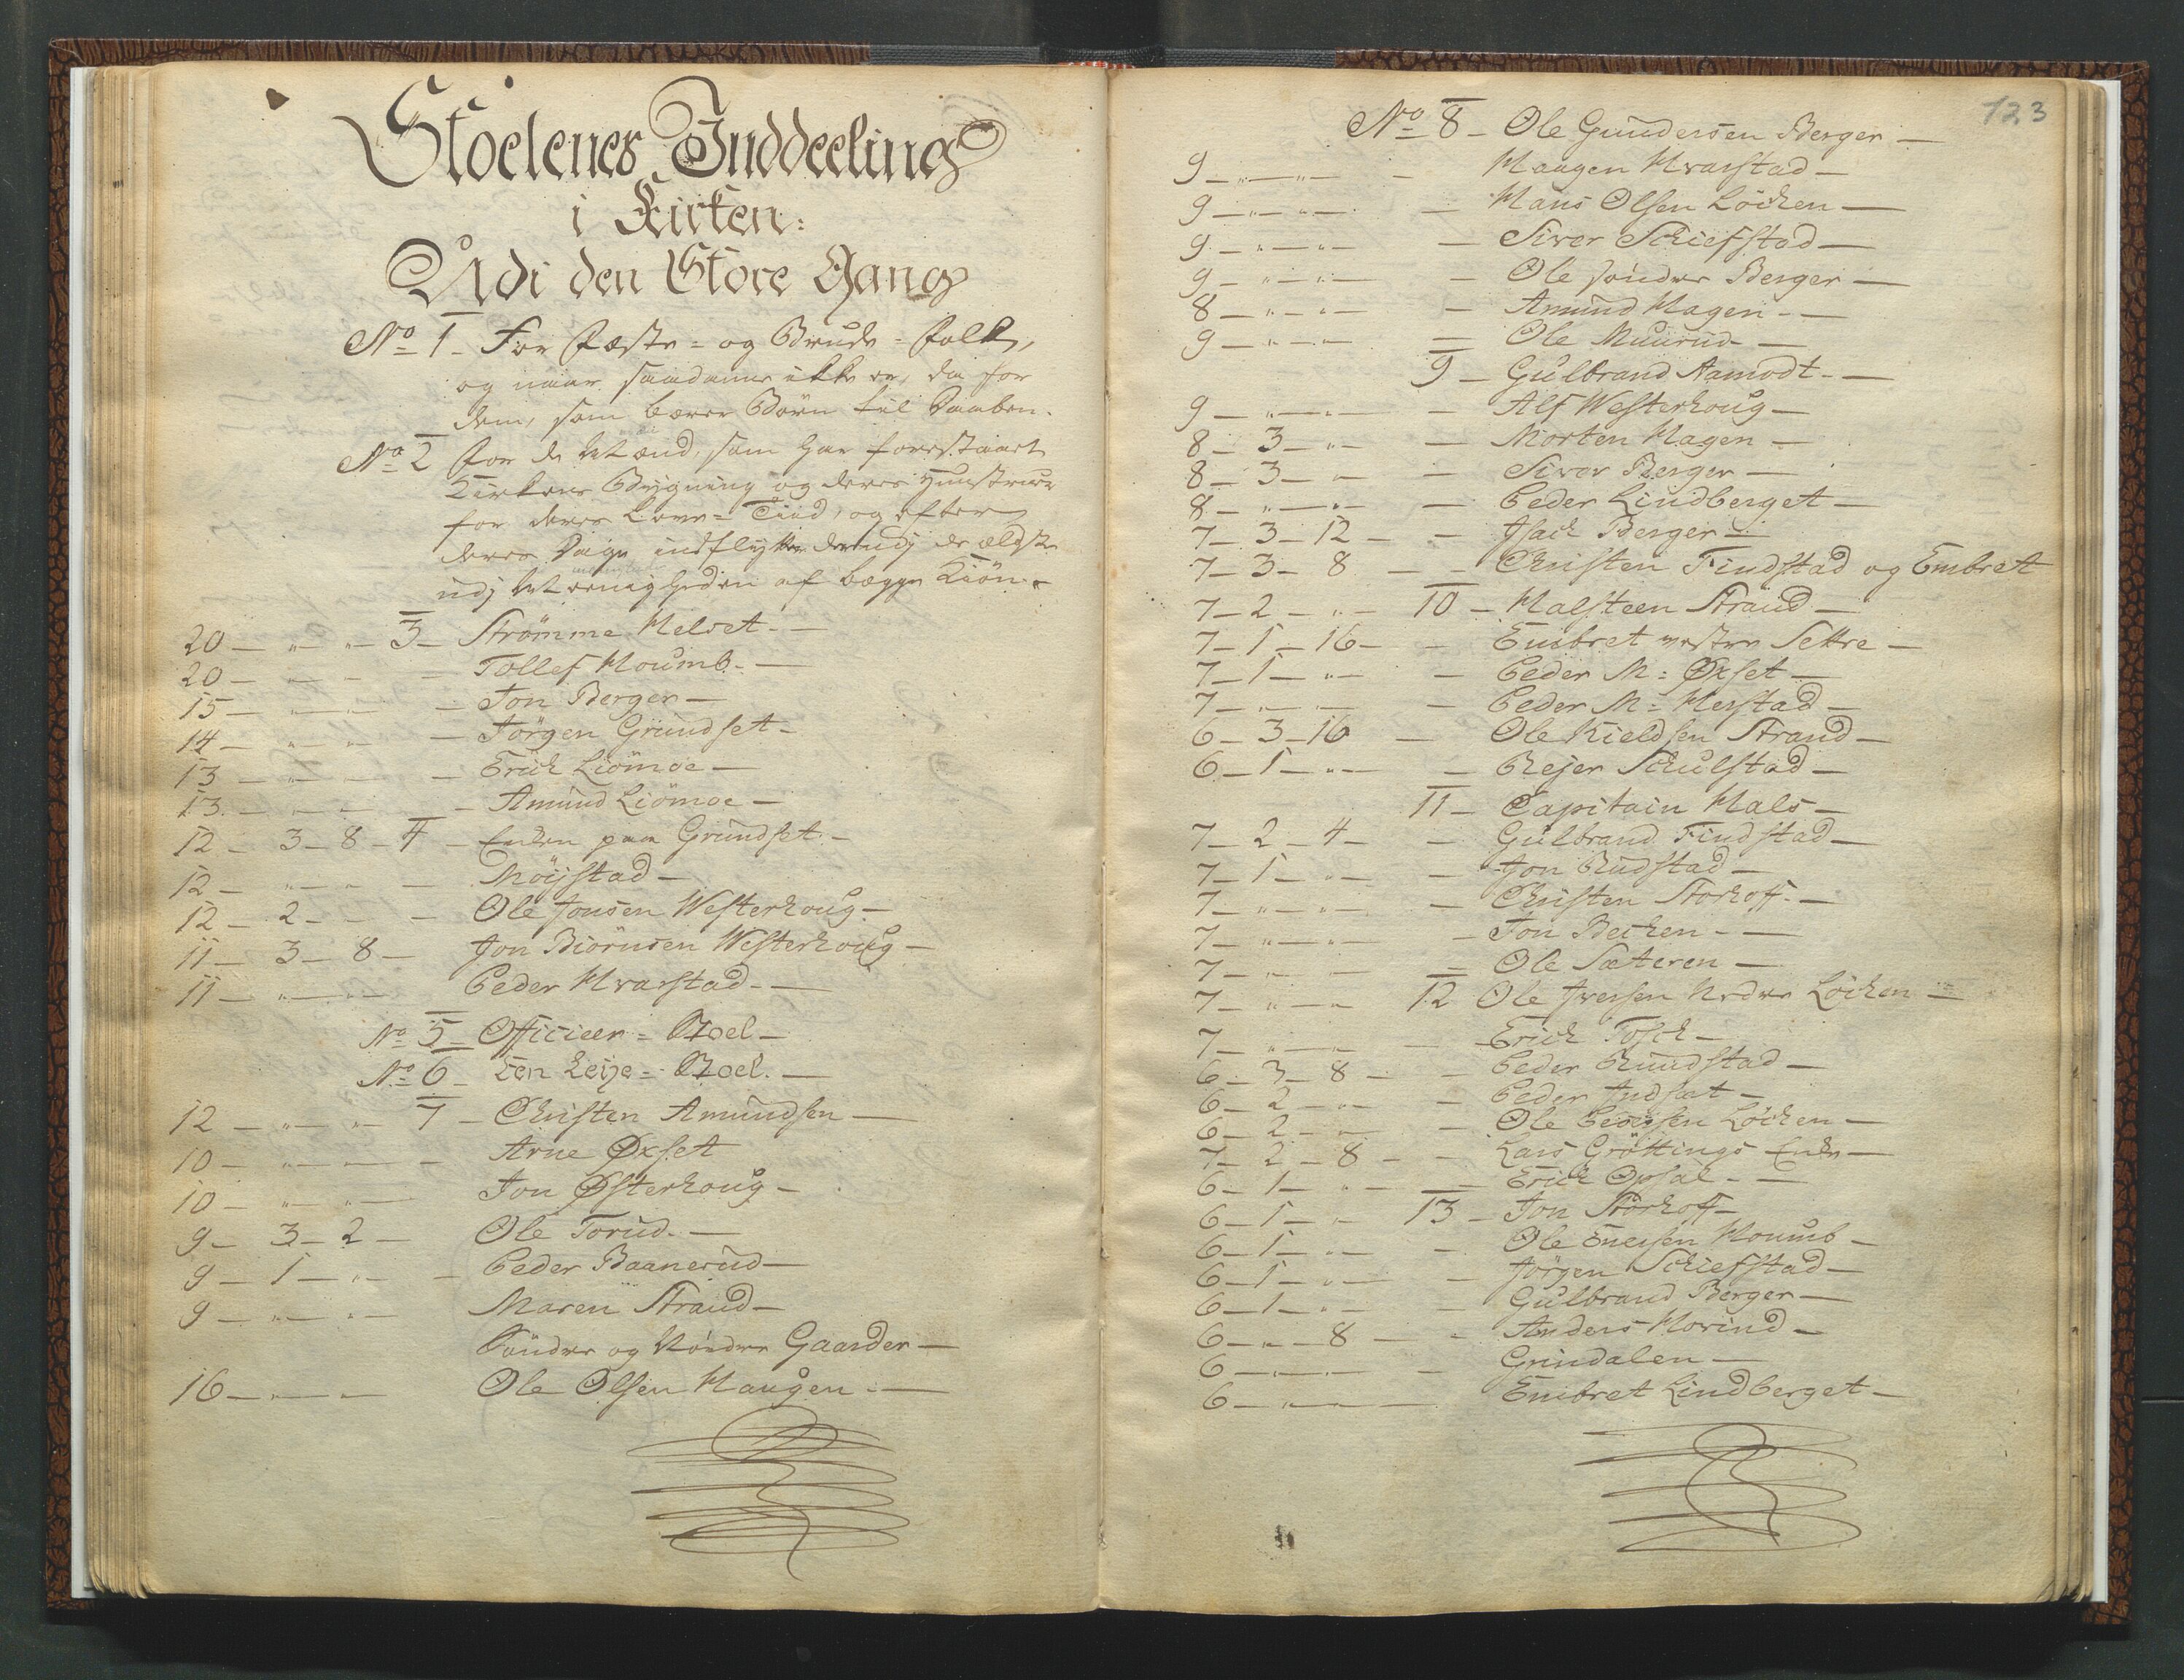 Stoelenes Inddeeling
i Kirken:
Udi den Store Gang
No 1 - For Fæste = og Brude = Folk,
og naar saadanne ikke er, da for
dem, som bærer Börn til Daaben.
No 2 For de Mænd, som har forestaaet
Kirkens Bygning og deres Hustruer
for deres Leve = Tiid, og efter
deres Dage indflytter derudj de ælste
udj Meenigheden af begge Kiön.
20 - " - " - 3 - Strömme Melset -
20 - " - " - Tollef Houmb -
15 - " - " - Jon Berger -
14 - " - " - Jörgen Grundset -
13 - " - " - Erich Liömoe -
13 - " - " - Amund Liömoe -
12 - 3 - 8 - 4 - Enken paa Grundset -
12 - " - " - Möystad -
12 - 2 - - Ole Jonsen Westerhoug -
11 - 3 - 8 - Jon Biörnsen Westerhoug -
11 - " - " - Peder Hvarstad -
No 5 - Officieer = Stoel -
No 6 - Een Leye = Stoel. -
12 - " - " - 7 - Christen Amundsen -
10 - " - " - Arne Øxset
10 - " - " - Jon Østerhoug -
9 - 3 - 2 - Ole Torud -
9 - 1 - " - Peder Baanerud -
9 - " - " - Maren Strand -
Söndre og Nördre Gaarder -
16 - " - " Ole Olsen Haugen -
123
No 8 - Ole Gundersen Berger -
9 - " - " - Haagen Hvarstad -
9 - " - " - Hans Olsen Löcken -
9 - " - " - Siver Schiefstad -
9 - " - " - Ole söndre Berger -
8 - " - " - Amund Hagen -
9 - " - " - Ole Muurud -
9 - Gulbrand Aamodt -
9 - " - " - Alf Westerhoug -
8 - 3 - " - Morten Hagen -
8 - 3 - " - Siver Berger -
8 - " - " - Peder Lindberget -
7 - 3 - 12 - Isach Berger -
7 - 3 - 8 - Christen Findstad og Embret
7 - 2 - " - 10 - Halsteen Strand -
7 - 1 - 16 - Embret vestre Settre -
7 - 1 - " - Peder M: Øxset -
7 - " - " - Peder M: Herstad -
6 - 3 - 16 - Ole Kieldsen Strand -
6 - 1 - " - Rejer Schulstad -
11 - Capitain Hals -
7 - 2 - 4 - Gulbrand Findstad -
7 - 1 - " - Jon Rudstad -
7 - " - " - Christen Storhoff -
7 - " - " - Jon Becken -
7 - " - " - Ole Sæteren -
7 - " - " 12 Ole Iversen Nedre Löcken -
7 - " - " - Erich Tosch -
6 - 3 - 8 - Peder Rundstad -
6 - 2 - " - Peder Indset -
6 - 2 - " - Ole Löcken -
7 - 2 - 8 - Lars Gröttings Enke -
6 - 1 - " - Erich Opsal -
6 - 1 - " 13 - Jon Storhoff -
6 - 1 - " - Ole Houmb -
6 - 1 - " - Jörgen Schiefstad -
6 - 1 - " - Gulbrand Berger -
6 - " - 8 - Anders Horind -
6 - " - " - Grindalen -
6 - " - " - Embret Lindberget -